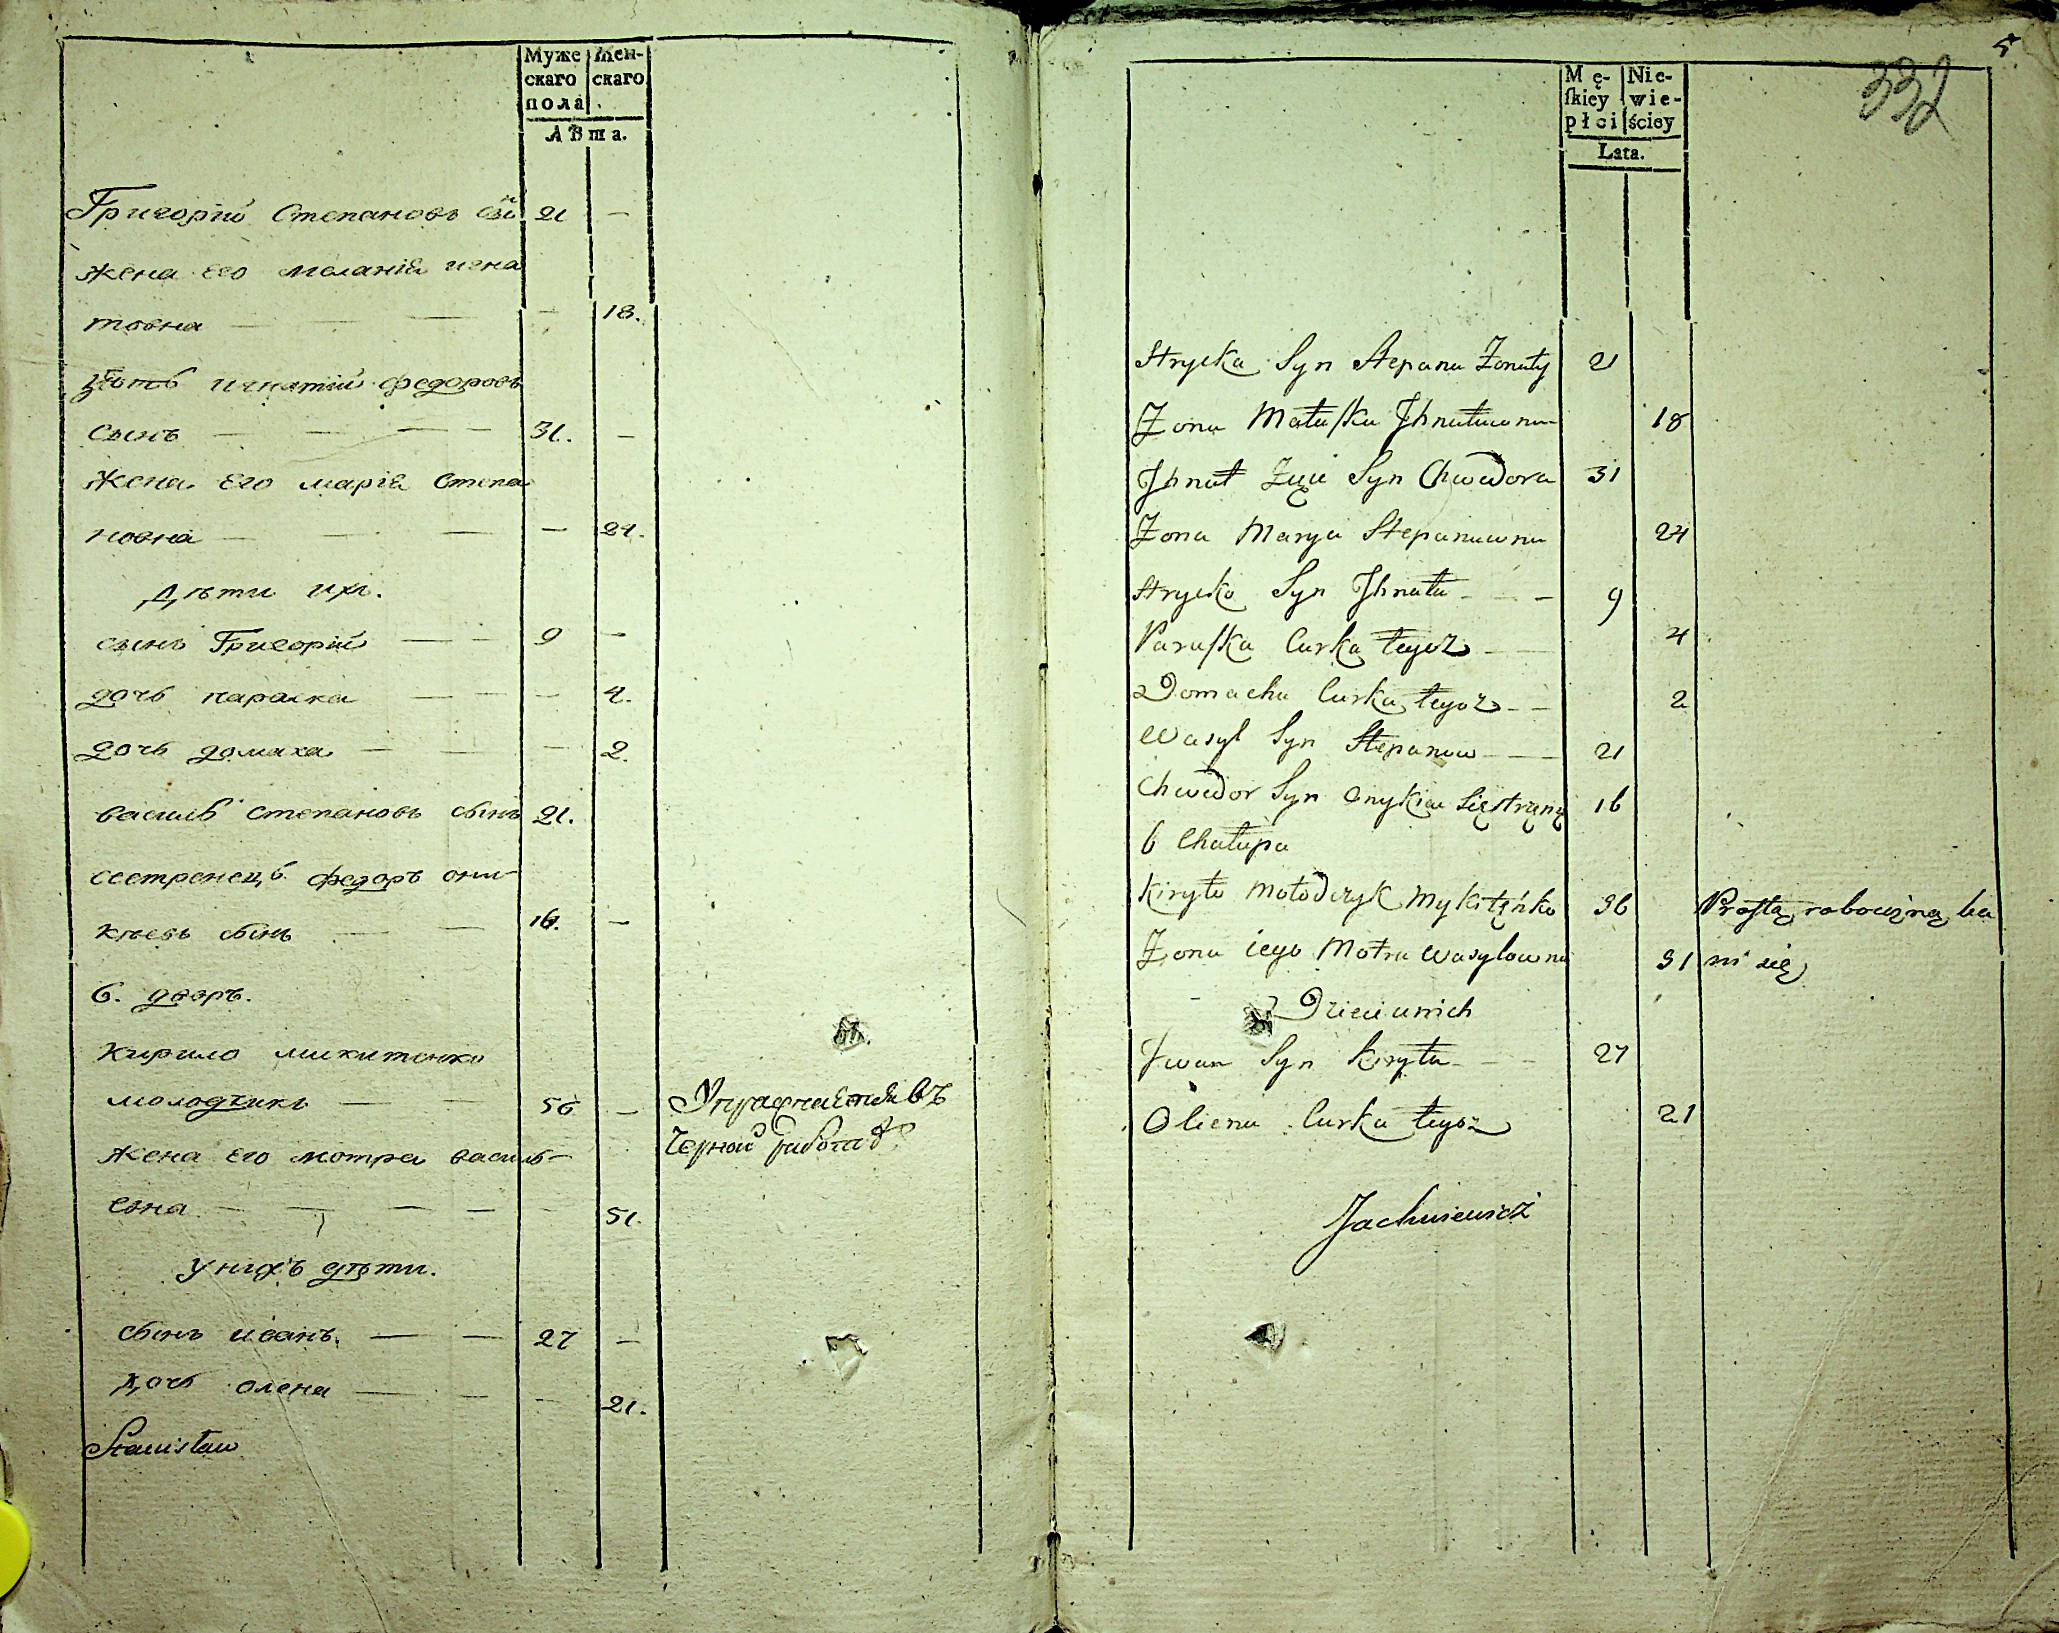 Муже
скаго
пола
Жен-
скаго
Лѣта.
Григорій Степановъ снъ 21 —
жена его меланія игна
товна — — — — 18.
зять игнатій федоровъ
сынъ — — — — 31. —
жена его марія степа
новна — — — — 24.
дѣти ихъ.
сынъ Григорій — — 9 —
дочь параска — — — 4.
дочь домаха — — — 2.
василь степановъ сынъ 21.
сестренецъ федоръ они-
кѣевъ сынъ — — 16. —
6. дворъ.
кирило микитенко
молодчикъ — — 56 — Упражнается въ
черной работѣ
жена его мотра василь-
евна — — — — — 51.
у нихъ дѣти.
сынъ иванъ. — — 27 —
дочь олена — — — 21.
Stanisław
5
332
Mę-
skiey
płci
Nie-
wie-
ściey
Lata.
Hrycka Syn Stepana Żonaty 21
Żona Małaſka Jhnatuwna 18
Jhnat Zięć Syn Chwedora 31
Żona Marya Stepanuwna 24
Hrycko Syn Jhnata — — — 9
Paraſka Curka tegoż — — 4
Domacha Curka tegoż — — 2
Wasyl Syn Stepanuw — — 21
Chwedor Syn Onykia Sięstrzęnę 16
6 Chałupa
Kiryło Mołodczyk Mykitęńko 56 Proſtą robocizną ba
Żona iego Motra Wasylowna 51 wi się
Dzieci unich
Jwan Syn Kiryła — — 27
Oliena Curka tegoż 21
Jachniewicz